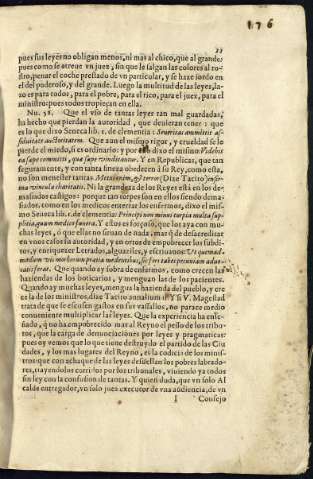 176
33
pues sus leyes no obligan menos, ni mas al chico, que al grande,
pues como se atreue vn juez, sin que le salgan las colores al ro-
stro, penar el coche prestado de vn particular, y se haze sordo en
el del poderoso, y del grande. Luego la multitud de las leyes, la-
zo es para todos, para el pobre, para el rico, para el juez, para el
ministro: pues todos tropieçan en ella.
Nu. 58. Que el vso de tantas leyes tan mal guardadas,
ha hecho que pierdan la autoridad, que deuieran tener: que
es lo que dixo Seneca lib. 1. de clemencia: Seueritas amittit as-
siduitate auctoritatem. Que aun el mismo rigor, y crueldad se le
pierde el miedo, si es ordinario: y por esso dixo el mismo
ea sæpe committi, quæ sæpe vindicantur. Y en Republicas, que tan
seguramente, y con tanta fineza obedecen à su Rey, como esta,
no son menester tantas. Metus, & terror (Dize Tacito) infir-
ma vincula charitatis. Ni la grandeza de los Reyes està en los de-
masiados castigos: porque tan torpes son en ellos siendo dema-
siados, como en los medicos enterrar los enfermos, dixo el mis-
mo Seneca lib. 1. de clementia: Principi non minus turpia multa sup-
plicia, quam medico funera. Y estos es forçoso, que los aya con mu-
chas leyes, ò que ellas no siruan de nada, mas q̃ de desacreditar
en vnos casos la autoridad, y en otros de empobrecer los subdi-
tos, y enriquecer Letrados, alguaziles, y escriuanos:
satisferat. Que quando ay sobra de enfermos, como crecen las
haziendas de los boticarios, y menguan las de los pacientes.
Quando ay muchas leyes, mengua la hazienda del pueblo, y cre-
ce la de los ministros, dize Tacito annalium Y si V. Magestad
trata de que se escusen gastos en sus vassallos, no parece medio
conueniente multiplicar las leyes. Que la experiencia ha ense-
ñado, q̃ no ha empobrecido mas al Reyno el peso de los tribu-
tos, que la carga de denunciaciones por leyes y pragmaticas:
pues oy vemos que lo que tiene destruydo el partido de las Ciu-
dades, y los mas lugares del Reyno, es la codicia de los minis-
tros que con achaque de las leyes desuellan los pobres labrado-
res, trayendolos corridos por los tribunales, viuiendo ya todos
sin ley con la confusion de tantas. Y quien duda, que vn solo Al
calde entregador, vn solo juez executor de vna audiencia, de vn
I Consejo